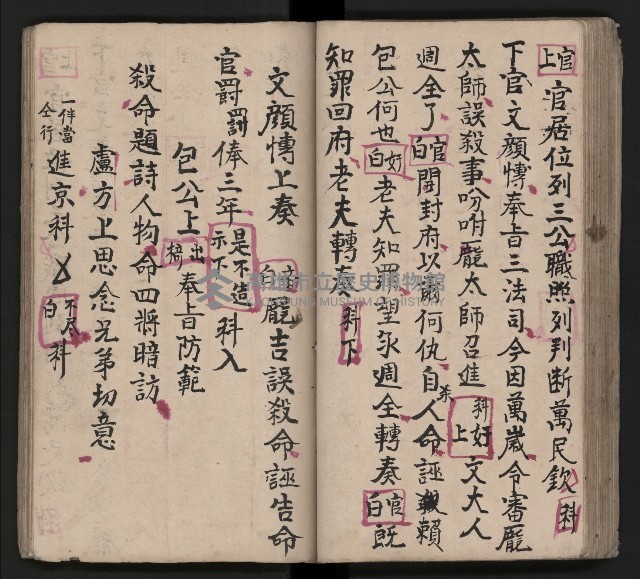 官上 官居位列三公職照列判断萬民欽 科
下官文顔愽奉旨三法司今因萬嵗令審龎
太師誤殺事吩咐龎太師召進 科好上 文大人
週全了 官白 開封府以 何仇自人命誣賴
包公何也 好白 老夫知罪望求週全轉奏 官白 既
知罪回府老夫轉奏 科下
文顔愽上奏 官白 龎吉誤殺命誣告命
官爵罰俸三年 是不造示下 科入
包公上 出擂 奉旨防範
殺命題詩人物命四將暗訪
盧方上思念兄弟切意
一件當仝行 進京科 不尽白 科
高雄市立歷史博物館
KAOHSIUNG MUSEUM OF HISTORY